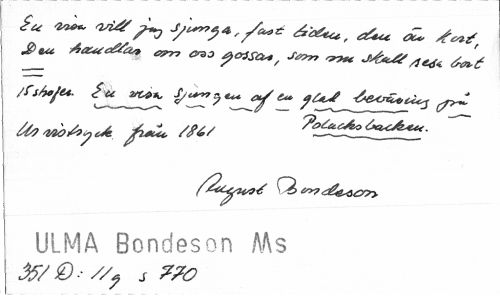 En visa vill jag sjunga, fast tiden, den är kort,
Den handlar om oss gossar, som nu skall resa bort
15 strofer. En visa sjungen af en glad beväring på
Polacksbacken.
Ur vistryck från 1861
August Bondeson
ULMA Bondeson Ms
351 D: 11 g s 770